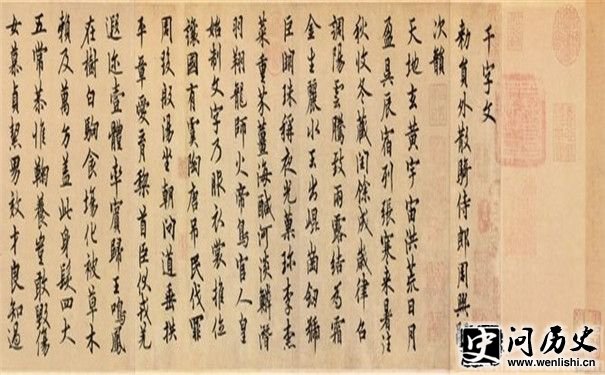 千字文
勑員外散騎侍郎周興
次韻
天地玄黃宇宙洪荒日月
盈昃辰宿列張寒來暑往
秋收冬藏閏餘成歲律召
調陽雲騰致雨露結為霜
金生麗水玉出崐崗劒號
巨闕珠稱夜光菓珍李柰
菜重芥薑海醎河淡鱗潛
羽翔龍師火帝鳥官人皇
始制文字乃服衣裳推位
讓國有虞陶唐吊民伐罪
周發殷湯坐朝問道垂拱
平章愛育黎首臣伏戎羌
遐迩壹體率賓歸王鳴鳳
在樹白駒食場化被草木
賴及萬方蓋此身髮四大
五常恭惟鞠養豈敢毀傷
女慕貞絜男效才良知過
史 问历史
www.wenlishi.cn